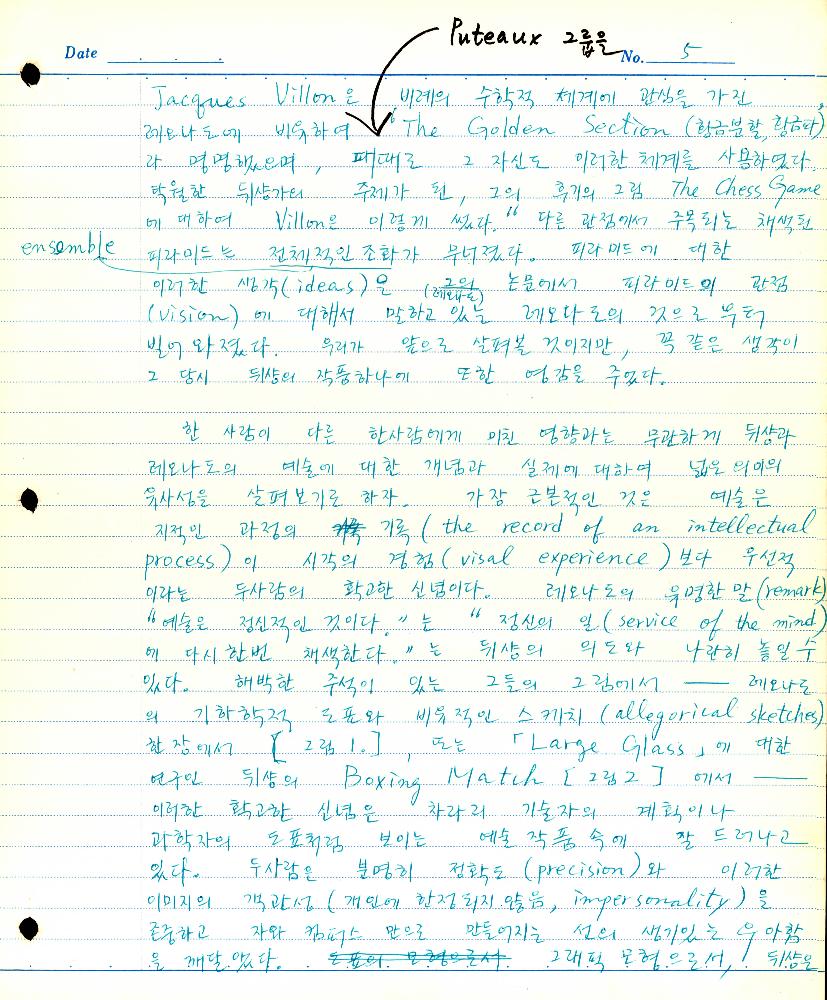 Puteaux 그룹을
Date No. 5
Jacques Villon은 비례의 수학적 체계에 관심을 가진
레오나도에 비유하여 "The Golden Section (황금분할, 황금타)"
라 명명했으며, 때때로 그 자신도 이러한 체계를 사용하였다.
탁월한 뒤샹가의 주제가 된, 그의 후기의 그림 The Chess Game
에 대하여 Villon은 이렇게 썼다. "다른 관점에서 주목되는 채색된
ensemble
피라미드는 전체적인 조화가 무너졌다. 피라미드에 대한
이러한 생각(ideas)은 그의 (레오나도) 논문에서 피라미드의 관점
(vision)에 대해서 말하고 있는 레오나도의 것으로부터
빌어와졌다. 우리가 앞으로 살펴볼 것이지만, 꼭 같은 생각이
그 당시 뒤샹의 작품하나에 또한 영감을 주었다.
한 사람이 다른 한사람에게 미친 영향과는 무관하게 뒤샹과
레오나도의 예술에 대한 개념과 실제에 대하여 넓은 의미의
유사성을 살펴보기로 하자. 가장 근본적인 것은 예술은
지적인 과정의 기록 (the record of an intellectual
process)이 시각의 경험(visal experience)보다 우선적
이라는 두사람의 확고한 신념이다. 레오나도의 유명한 말(remark)
"예술은 정신적인 것이다."는 "정신의 일(service of the mind)
에 다시한번 채색한다."는 뒤샹의 의도와 나란히 놓일 수
있다. 해박한 주석이 있는 그들의 그림에서 — 레오나도
의 기하학적 도표와 비유적인 스케치 (allegorical sketches)
한 장에서 [그림 1.], 또는 「Large Glass」에 대한
연구인 뒤샹의 Boxing Match [그림2] 에서 —
이러한 확고한 신념은 차라리 기술자의 계획이나
과학자의 도표처럼 보이는 예술 작품 속에 잘 드러나고
있다. 두사람은 분명히 정확도(precision)와 이러한
이미지의 객관성 (개인에 한정되지 않음, impersonality)을
존중하고 자와 캄퍼스 만으로 만들어지는 선의 생기있는 우아함
을 깨달았다. 도표의 모형으로서 그래픽 모형으로서, 뒤샹은